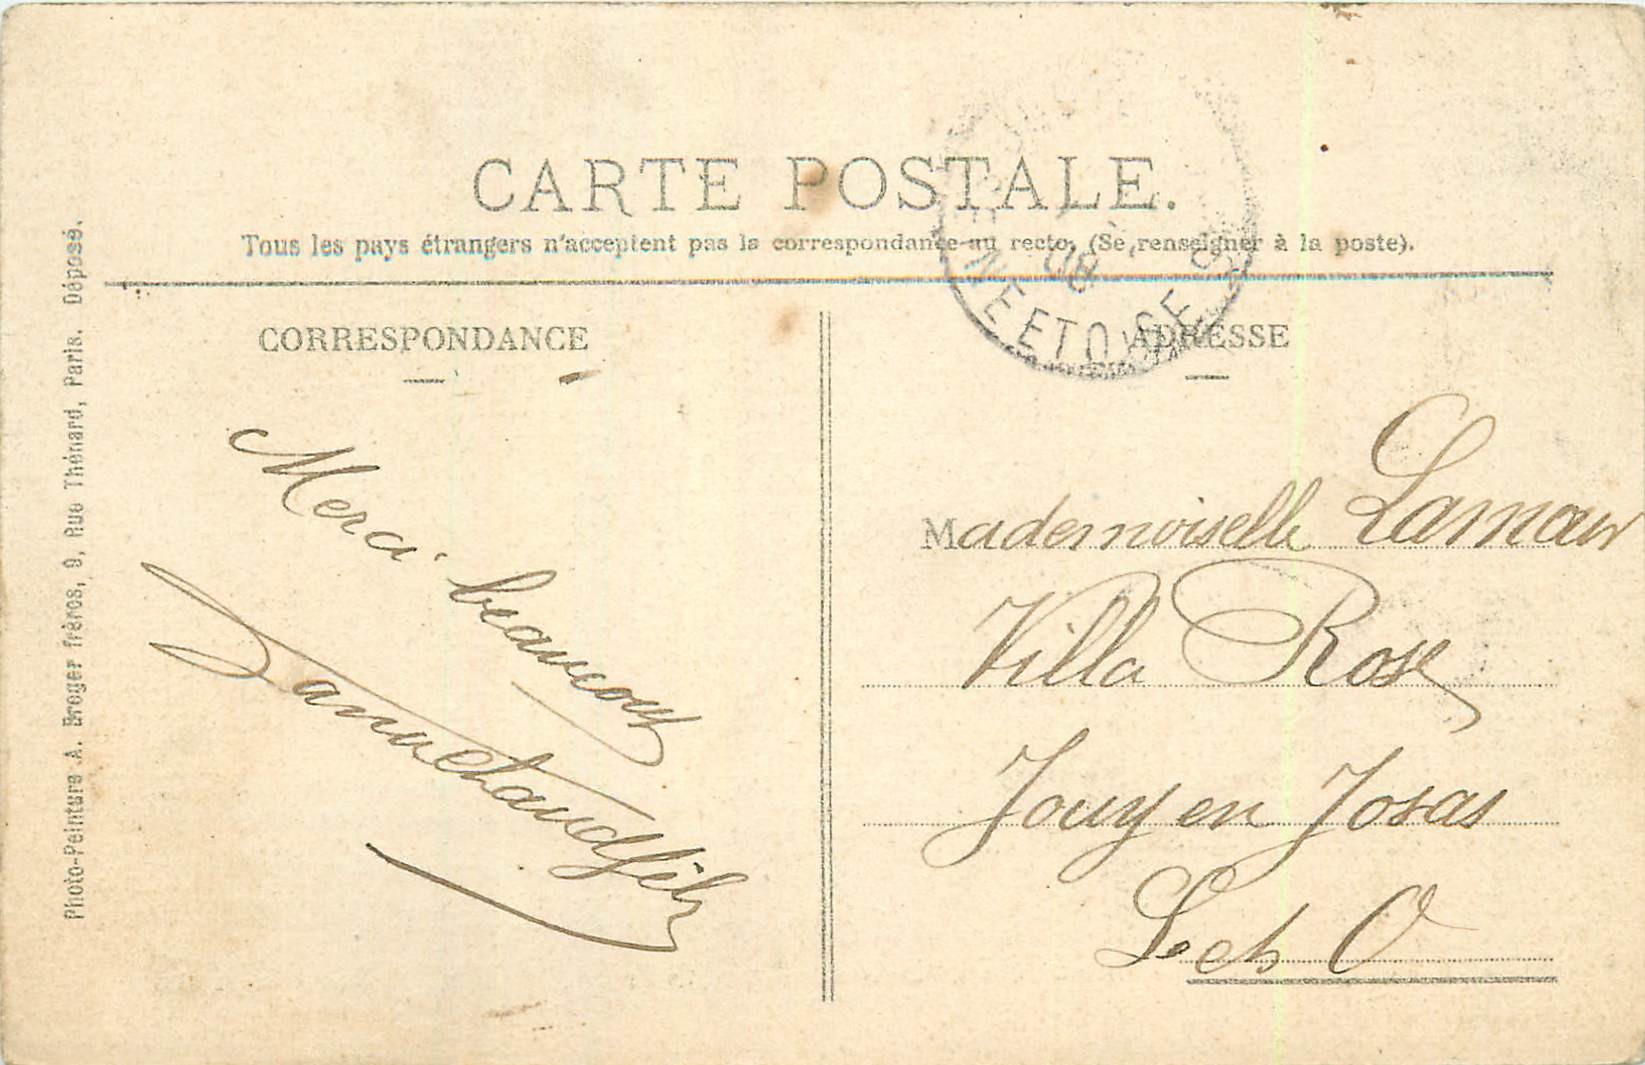 CARTE POSTALE.
Tous les pays étrangers n'acceptent pas la correspondance au recto. (Se renseigner à la poste).
CORRESPONDANCE
ADRESSE
Merci beaucoup
Mademoiselle
Villa Rose
Jouy en Josas
S et O
Photo-Peinture A. Breger frères, 9, Rue Thénard, Paris. Déposé.
08
NE ET OISE